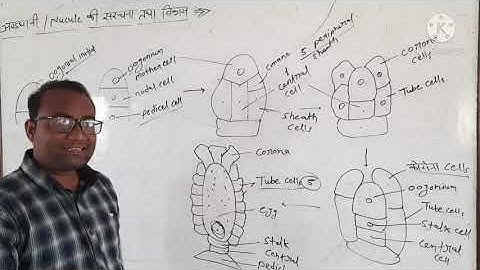 अण्डधानी / Nucule की संरचना तथा विकास
oogonial initial
oogonium
mother cell
nodal cell
pedicel cell
5 peripheral
sheath
central
cell
sheath
cells
corona
cells
Tube cells
corona
Tube cells 5
egg
stalk
central
pedicel
कोरोना cells
oogonium
Tube cells
stalk cell
central
cell
KINEMASTER